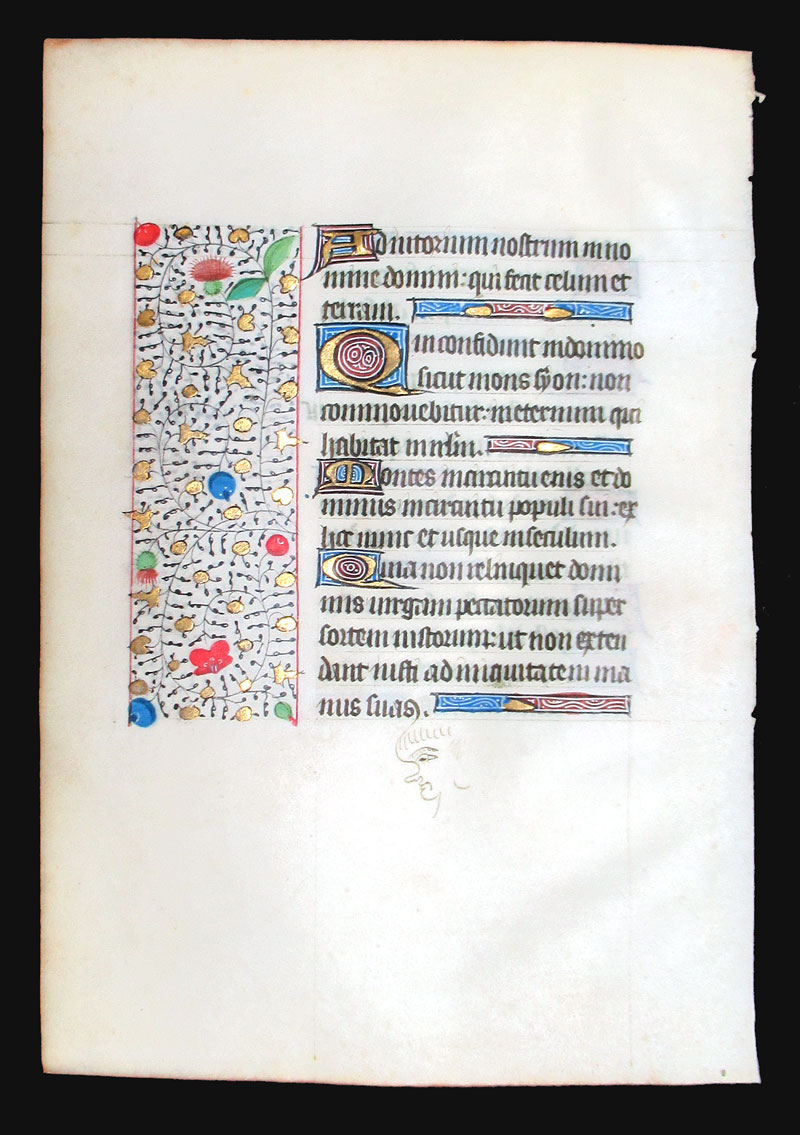 Adiutorium nostrum in no
mine domini: qui fecit celum et
terram.
Qui confidunt in domino
sicut mons syon: non
commovebitur in eternum qui
habitat in irlm.
Montes in circuitu eius et do
minus in circuitu populi sui: ex
hoc nunc et usque in seculum.
Quia non relinquet domi
nus virgam peccatorum super
sortem iustorum: ut non exten
dant iusti ad iniquitatem ma
nus suas.